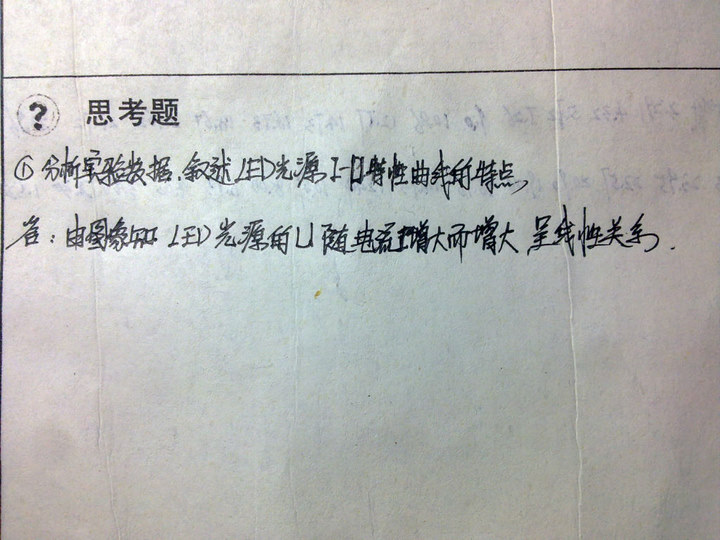 ? 思考题
① 分析实验数据,叙述LED光源I-U特性曲线的特点
答:由图象知 LED光源的U随电流增大而增大 呈线性关系.